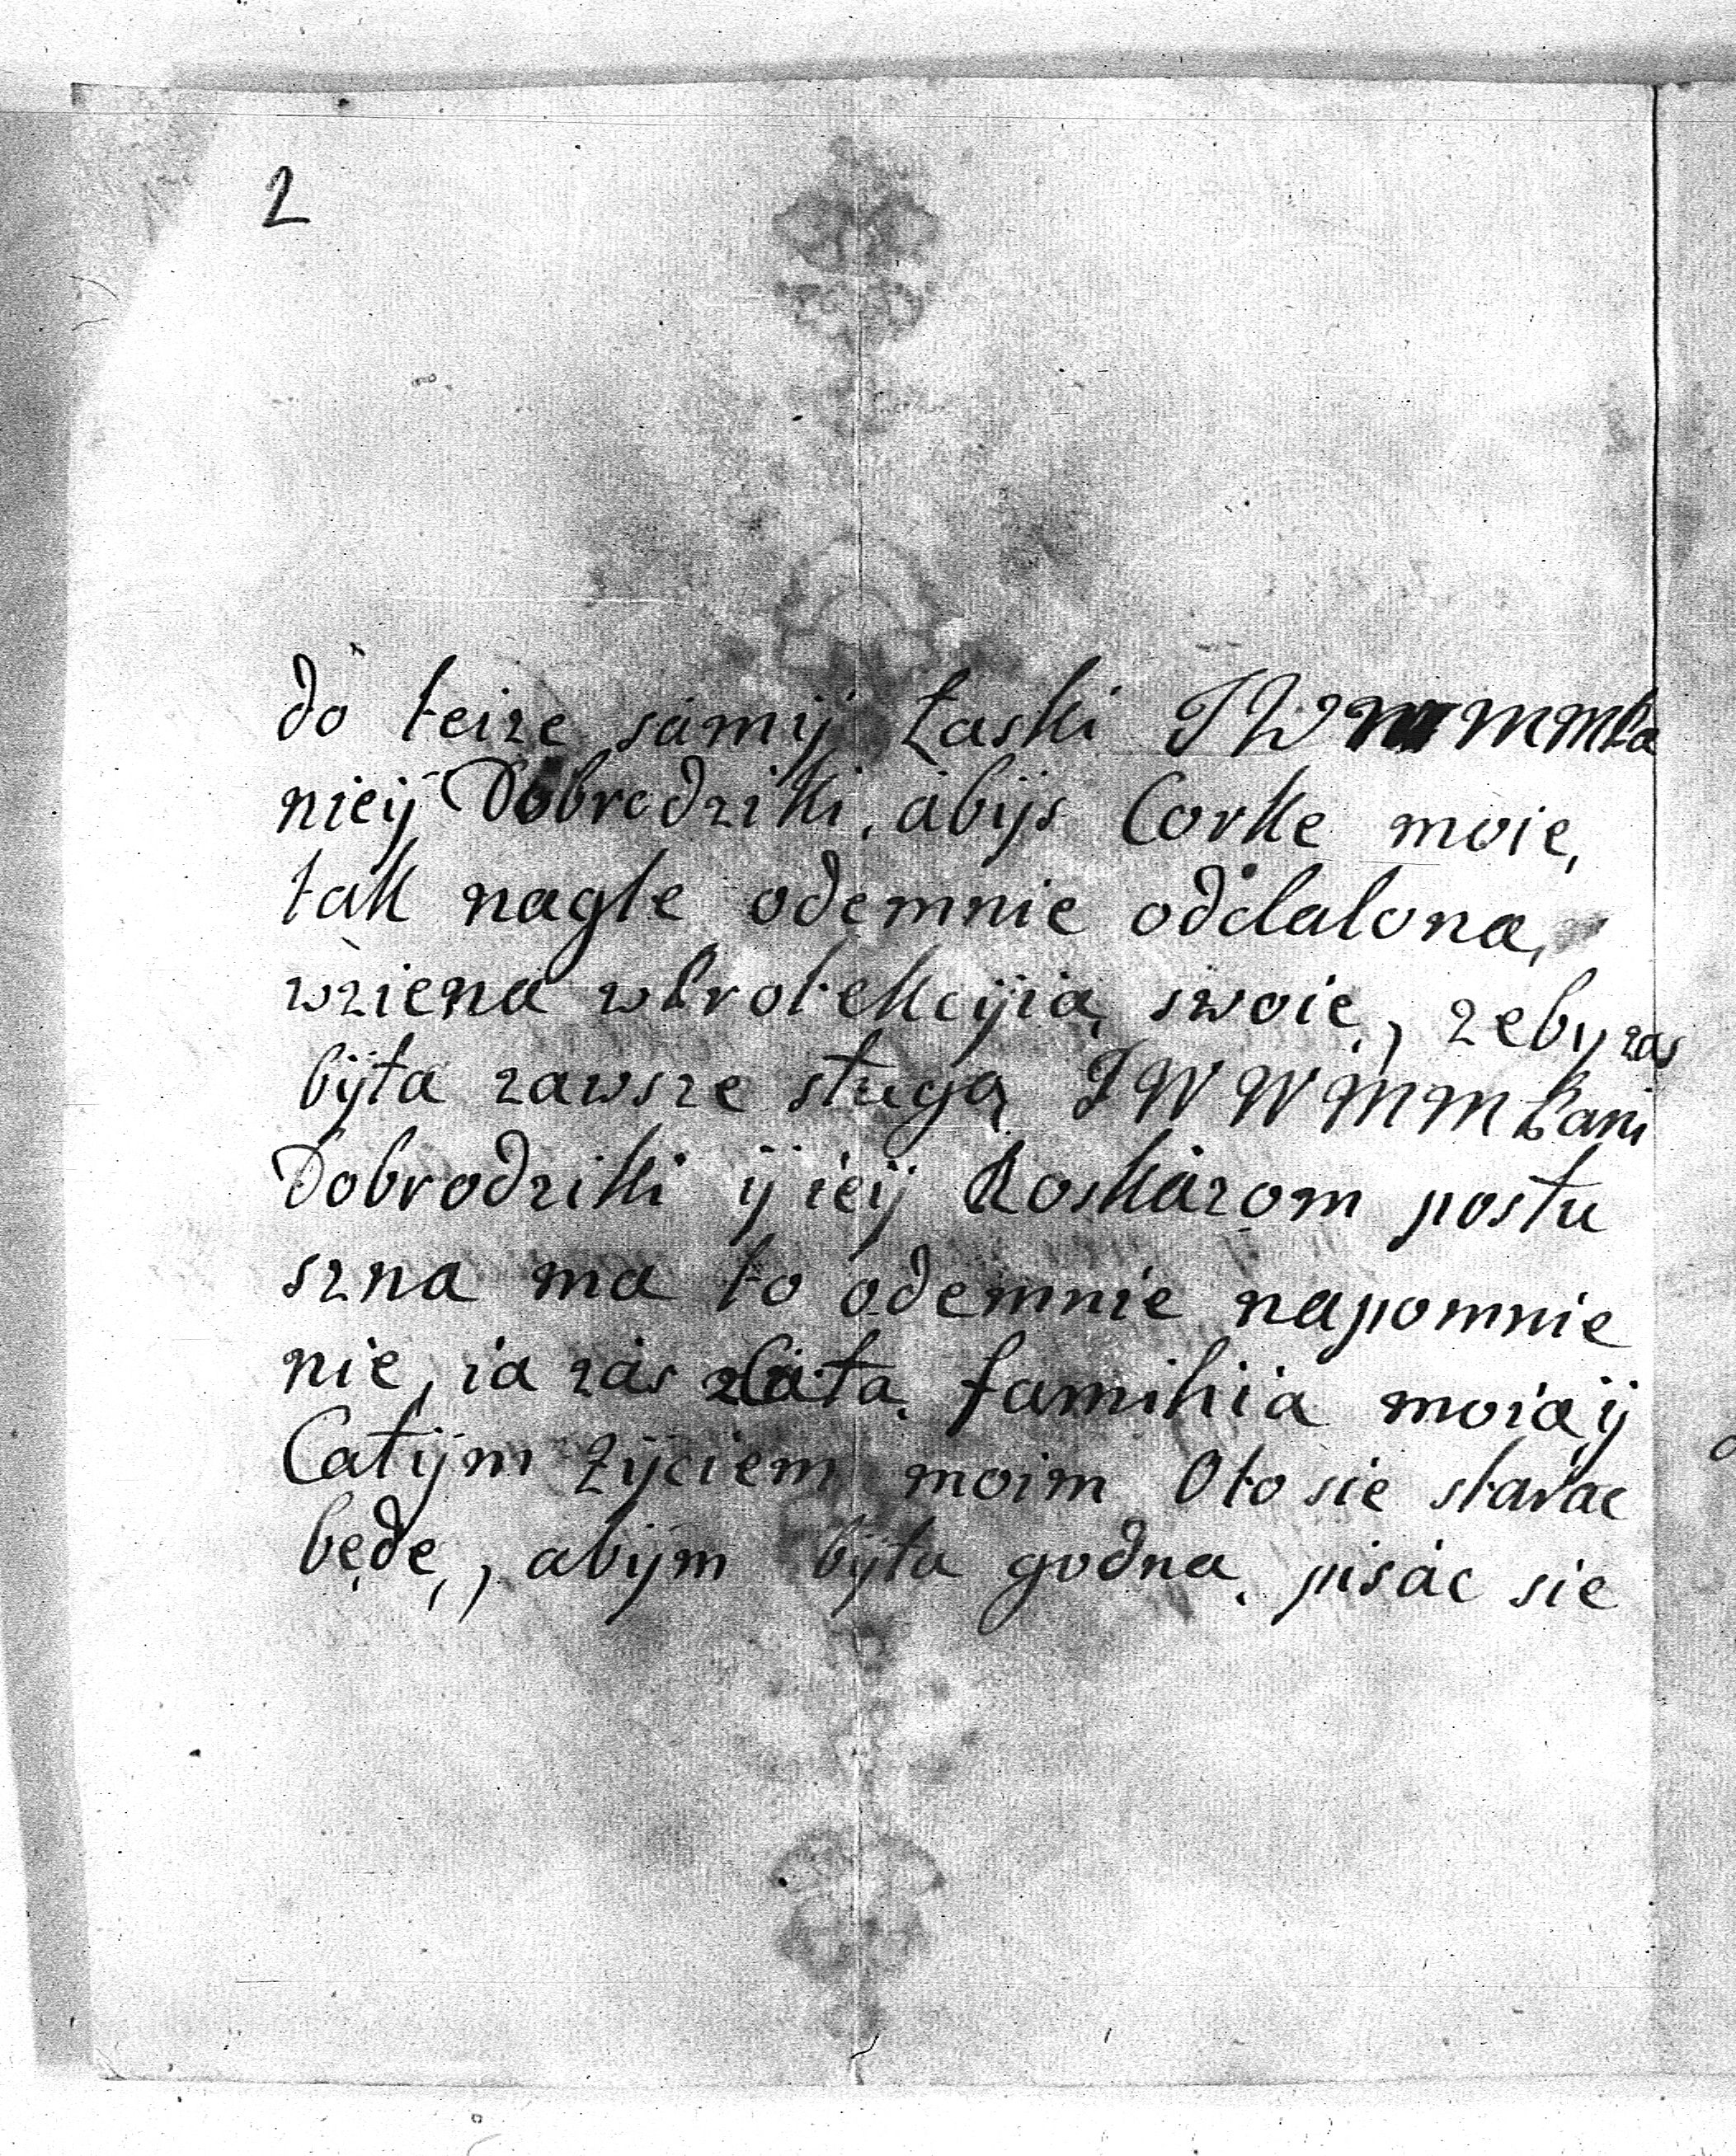 2
do teize samij Łaski J W M M Pa
nieij Dobrodziki, abijs Corke moię,
tak nagle odemnie oddaloną,
wziena w Protekcijią swoię, zeby zas
bijła zawsze sługą J W W M M Pani
Dobrodziki ij ieij Roskazom posłu
szna ma to odemnie napomnie
nie, ia zas z Całą familiia moią ij
Całijm Zijciem moim Oto sie starac
będę, abijm bijła godna, pisac sie